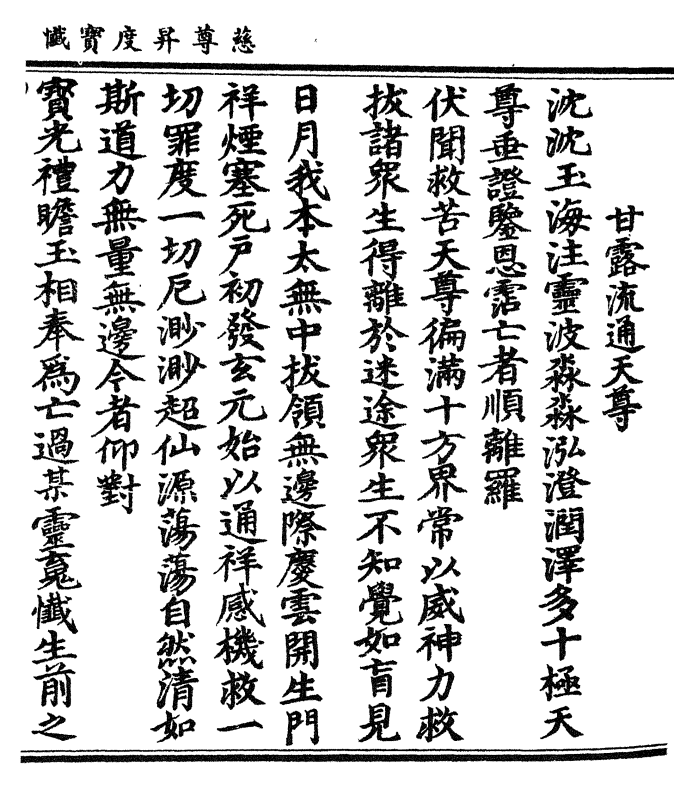 慈尊昇度寶懺
甘露流通天尊
沈沈玉海注靈波淼淼泓澄潤澤多十極天
尊垂證鑒恩霑亡者順離羅
伏聞救苦天尊徧滿十方界常以威神力救
拔諸眾生得離於迷途眾生不知覺如盲見
日月我本太無中拔領無邊際慶雲開生門
祥煙塞死戶初發玄元始以通祥感機救一
切罪度一切厄渺渺超仙源蕩蕩自然清如
斯道力無量無邊今者仰對
寶光禮瞻玉相奉為亡過某靈魂懺生前之